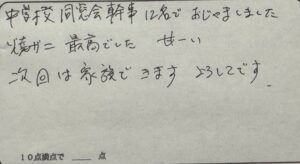 中学校 同窓会幹事 12名で おじゃましました
焼ガニ 最高でした 甘ーい
次回は家族できます よろしくです
10点満点で ＿＿ 点